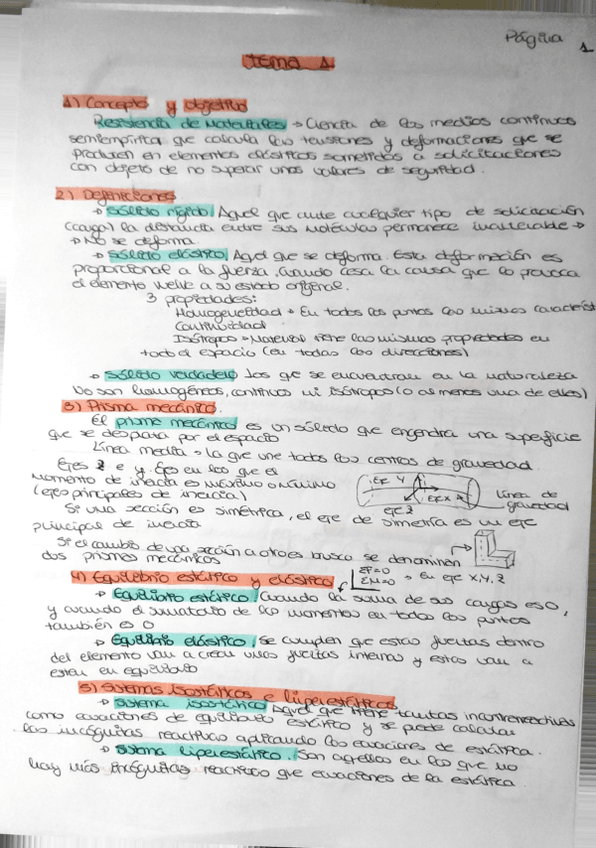 Página 1
Tema 1
1) Concepto y objetivo
Resistencia de Materiales → Ciencia de los medios continuos
semiempírica que calcula las tensiones y deformaciones que se
producen en elementos elásticos sometidos a solicitaciones
con objeto de no superar unos valores de seguridad.
2) Definiciones
→ Sólido rígido: Aquel que ante cualquier tipo de solicitación
(carga) la distancia entre sus moléculas permanece inalterable →
→ No se deforma.
→ Sólido elástico: Aquel que se deforma. Esta deformación es
proporcional a la fuerza. Cuando cesa la causa que lo provoca
el elemento vuelve a su estado original.
3 propiedades:
Homogeneidad → En todos los puntos las mismas característ
Continuidad
Isótropos → Material tiene las mismas propiedades en
todo el espacio (en todas las direcciones)
→ Sólido verdadero: los que se encuentran en la naturaleza
No son homogéneos, continuos ni isótropos (o al menos una de ellas)
3) Prisma mecánico.
El prisma mecánico es un sólido que engendra una superficie
que se desplaza por el espacio
Línea media → la que une todos los centros de gravedad.
Ejes z e y. Ejes en los que el
momento de inercia es máximo o mínimo
(ejes principales de inercia)
eje y
eje x
eje z
línea de
gravedad
Si una sección es simétrica, el eje de simetría es un eje
principal de inercia
Si el cambio de una sección a otra es brusco se denominan
dos prismas mecánicos
4) Equilibrio estático y elástico
ΣF=0
ΣM=0 → En eje X, Y, Z
→ Equilibrio estático: Cuando la suma de sus cargas es 0,
y cuando el sumatorio de los momentos en todos los puntos
también es 0
→ Equilibrio elástico: Se cumplen que estas fuerzas dentro
del elemento van a crear unas fuerzas internas y estas van a
estar en equilibrio
5) Sistemas isostáticos e hiperestáticos
→ Sistema isostático: Aquel que tiene tantas
como ecuaciones de equilibrio estático y se puede calcular
las incógnitas reactivas aplicando las ecuaciones de estática.
→ Sistema hiperestático. Son aquellos en los que no
hay más incógnitas reactivas que ecuaciones de la estática